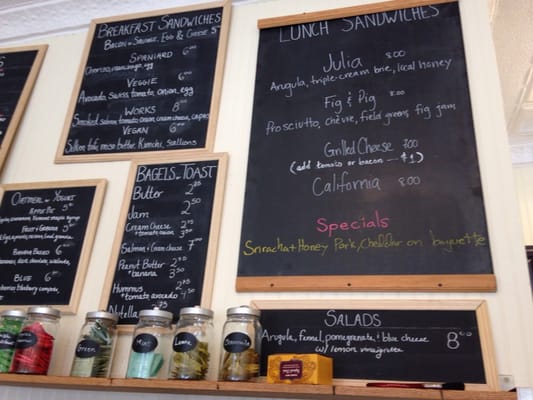 BREAKFAST SANDWICHES
BACON or SAUSAGE, EGG & CHEESE 5
SPANIARD 6
Chorizo, manchego, egg
VEGGIE 6
Avocado, Swiss, tomato, onion, egg
WORKS 8
Smoked salmon, tomato, onion, cream cheese, capers
VEGAN 6
Silken tofu, miso butter, Kimchi, Scallions
LUNCH SANDWICHES
Julia 8.00
Arugula, triple-cream brie, local honey
Fig & Pig 8.00
Prosciutto, chèvre, field greens, fig jam
Grilled Cheese 7.00
(add tomato or bacon - $1)
California 8.00
Specials
Sriracha + Honey Pork, cheddar on baguette
OATMEAL or YOGURT
APPLE PIE 5
FRUIT & GRAINS 5
BANANA BREAD 6
BLUE 6
BAGELS or TOAST
Butter 2.00
Jam 2.50
Cream Cheese 2.75
+ tomato, onion 3.75
Salmon & cream cheese 7.00
Peanut Butter 2.50
+ banana 3.50
Hummus 2.75
+ tomato, avocado 4.50
SALADS
Arugula, fennel, pomegranate, + blue cheese 8.00
w/ lemon vinaigrette
Green
Mint
Lemon
Chamomile